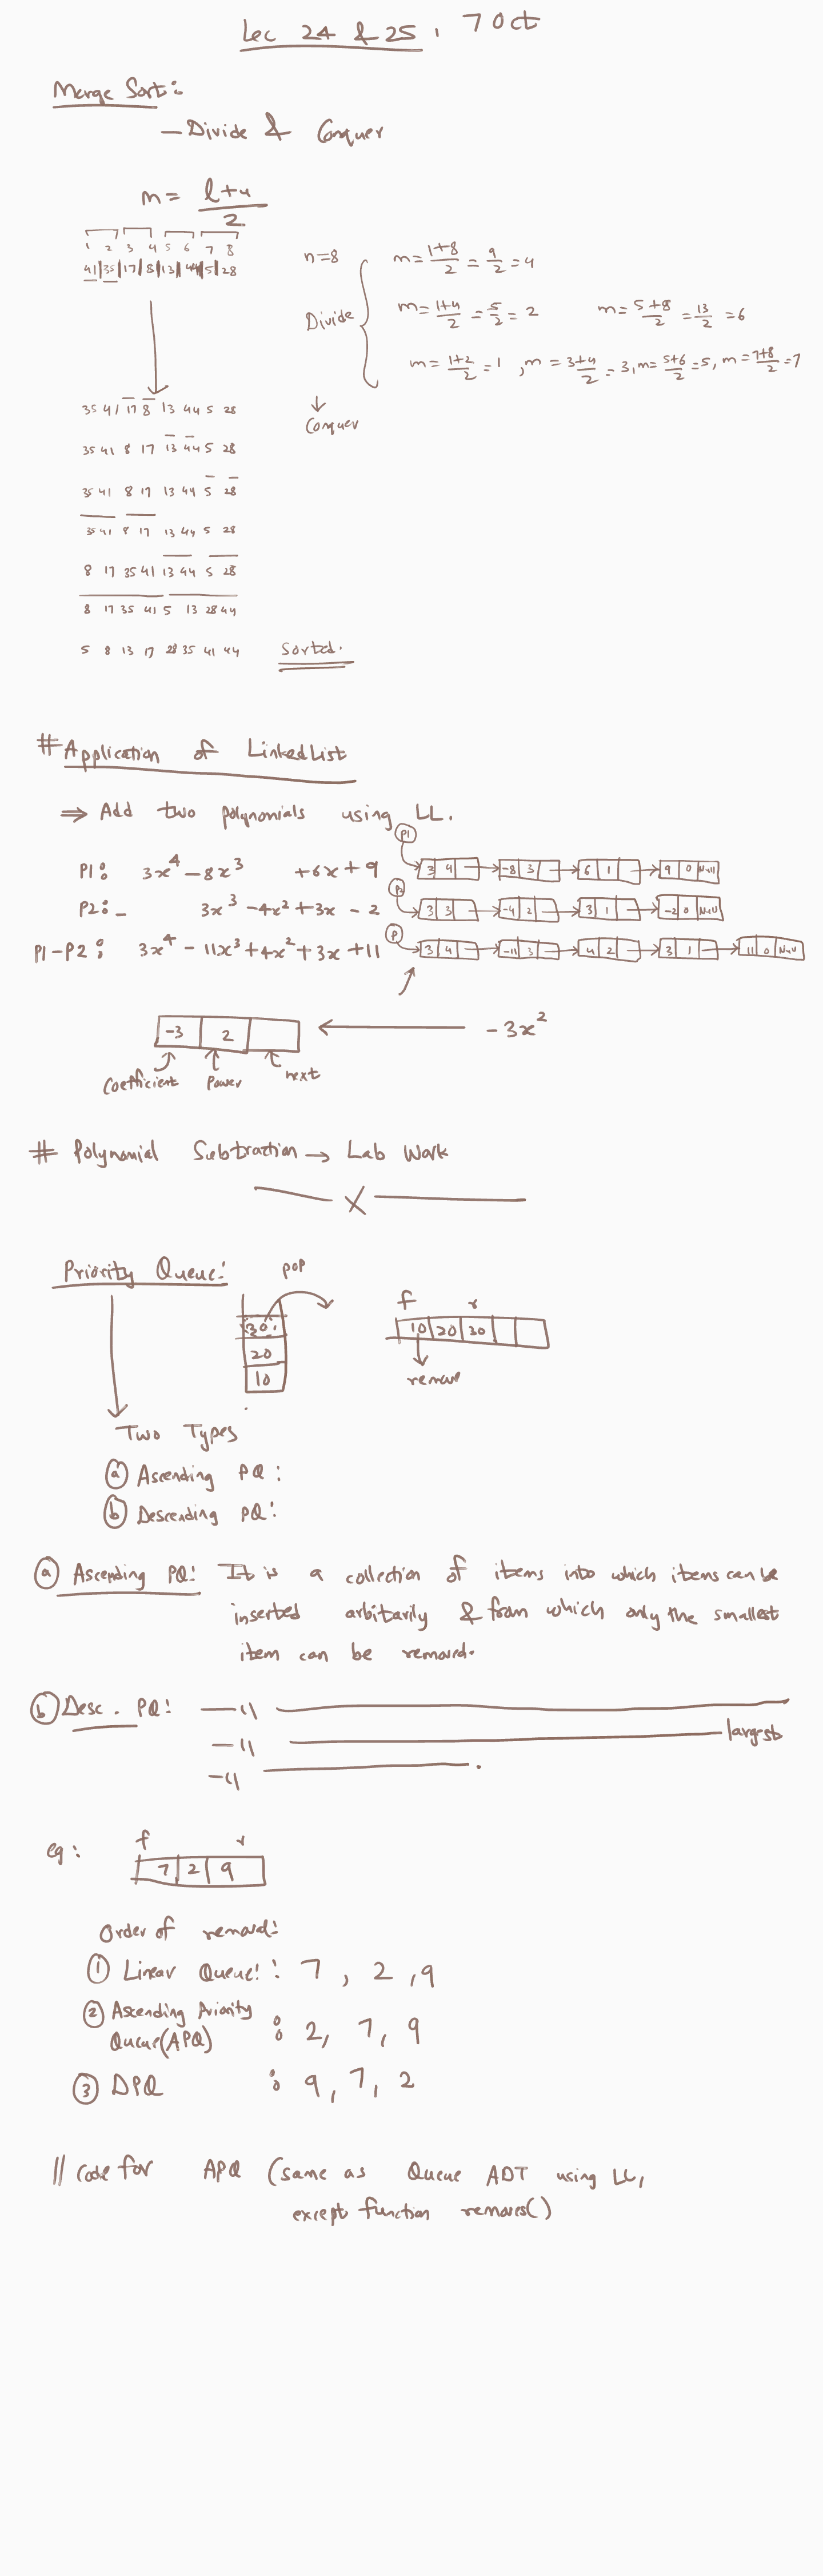 Lec 24 & 25, 7 Oct
Merge Sort:
— Divide & Conquer
m = l+u/2
1 2 3 4 5 6 7 8
41|35|17|8|13|44|5|28
n=8
Divide
m = 1+8/2 = 9/2 = 4
m = 1+4/2 = 5/2 = 2 m = 5+8/2 = 13/2 = 6
m = 1+2/2 = 1 , m = 3+4/2 = 3, m = 5+6/2 = 5, m = 7+8/2 = 7
↓
Conquer
35 41 17 8 13 44 5 28
35 41 8 17 13 44 5 28
35 41 8 17 13 44 5 28
35 41 8 17 13 44 5 28
8 17 35 41 13 44 5 28
8 17 35 41 5 13 28 44
5 8 13 17 28 35 41 44 Sorted.
# Application of LinkedList
⇒ Add two polynomials using LL.
P1: 3x⁴ - 8x³ + 6x + 9
P1 3 4 → -8 3 → 6 1 → 9 0 Null
P2:- 3x³ - 4x² + 3x - 2
P2 3 3 → -4 2 → 3 1 → -2 0 Null
P1-P2: 3x⁴ - 11x³ + 4x² + 3x + 11
P 3 4 → -11 3 → 4 2 → 3 1 → 11 0 Null
-3 2 ← -3x²
Coefficient Power next
# Polynomial Subtraction → Lab Work
X
Priority Queue:
pop
30
20
10
f r
10 20 30
remove
Two Types
(a) Ascending PQ:
(b) Descending PQ:
(a) Ascending PQ: It is a collection of items into which items can be
inserted arbitarily & from which only the smallest
item can be removed.
(b) Desc. PQ: —〃—
—〃— largest
—〃— .
eg: f r
7 2 9
Order of removal:
(1) Linear Queue: : 7, 2, 9
(2) Ascending Priority
Queue(APQ) : 2, 7, 9
(3) DPQ : 9, 7, 2
// Code for APQ (same as Queue ADT using LL,
except function removes()